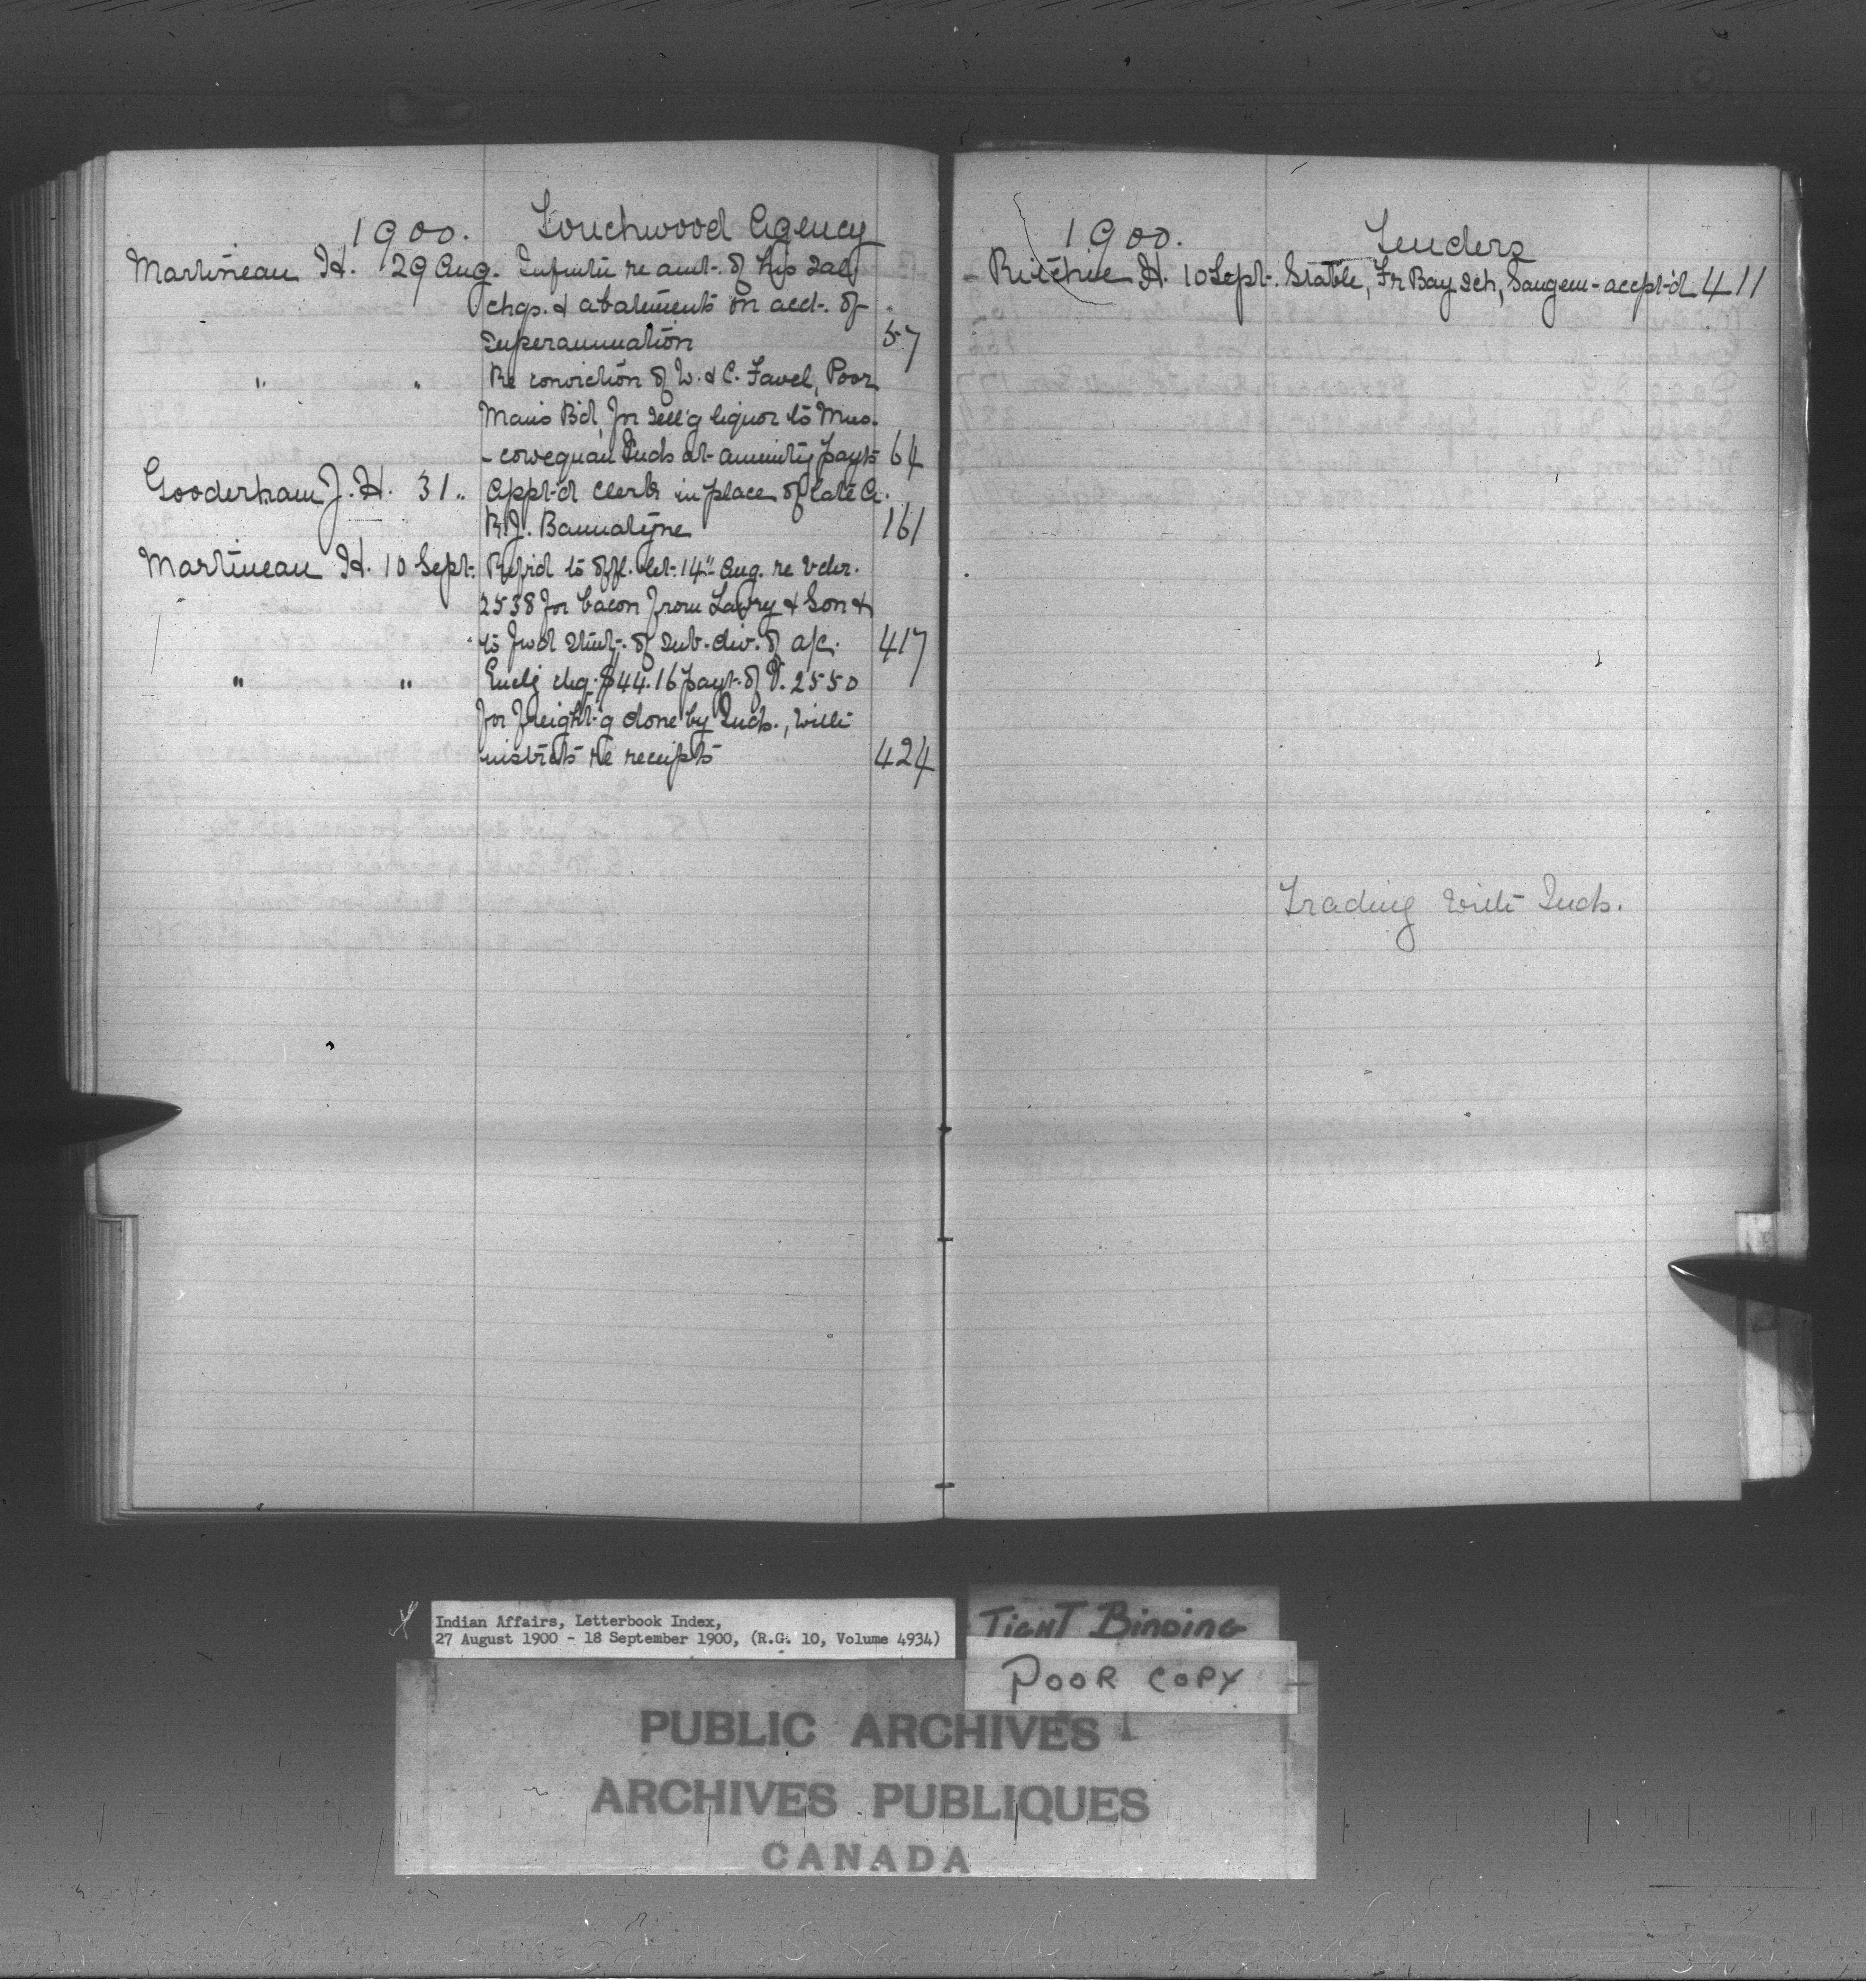 1900. Touchwood Agency
Martineau H. 29 Aug. Informtn re amt. of his saly
chgs. & abatements on acct. of
superannuation 57
" " Re conviction of W. & C. Favel, Poor
Mans Bd, for sell'g liquor to Mus-
- cowequan Inds at annuity payts 64
Gooderham J. H. 31 " Appt'd clerk in place of late A.
R. J. Bannatyne 161
Martineau H. 10 Sept. Ref'rd to offl. let. 14" Aug. re Vchr.
2538 for bacon from & Son &
to fwd stmt. of sub-div. of a/c. 417
" " Encl'g chq. $44.16 payt. of V. 2550
for freight'g done by Inds., with
instrcts re receipts 424
1900. Tenders
- Ritchie H. 10 Sept. Stable, Fr Bay Sch, Saugeen - accpt'd 411
Trading with Inds.
Indian Affairs, Letterbook Index,
27 August 1900 - 18 September 1900, (R.G. 10, Volume 4934)
TIGHT BINDING
POOR COPY
PUBLIC ARCHIVES
ARCHIVES PUBLIQUES
CANADA